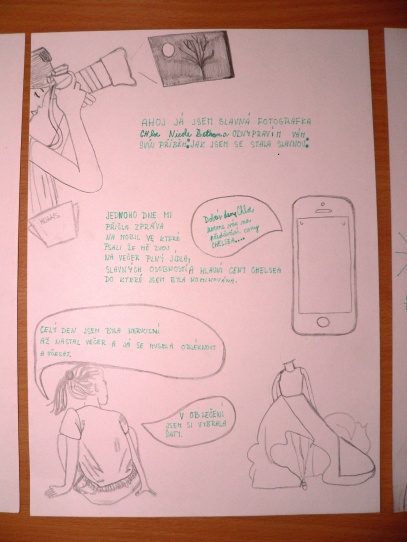 AHOJ JÁ JSEM SLAVNÁ FOTOGRAFKA
Nicole Bethana VÁM
SVŮJ PŘÍBĚH JAK JSEM SE STALA SLAVNOU
JEDNOHO DNE MI
PŘIŠLA ZPRÁVA
NA MOBIL VE KTERÉ
PSALI ŽE MĚ ZVOU
NA VEČER PLNÝ JÍDLA,
SLAVNÝCH OSOBNOSTÍ A HLAVNÍ CENY CHELSEA
DO KTERÉ JSEM BYLA NOMINOVÁNA.
Dobrý
CHELSEA...
CELÝ DEN JSEM BYLA NERVÓZNÍ
AŽ NASTAL VEČER A JÁ SE MUSELA OBLÉKNOUT
A
V OBLEČENÍ
JSEM SI VYBRALA
ŠATY.